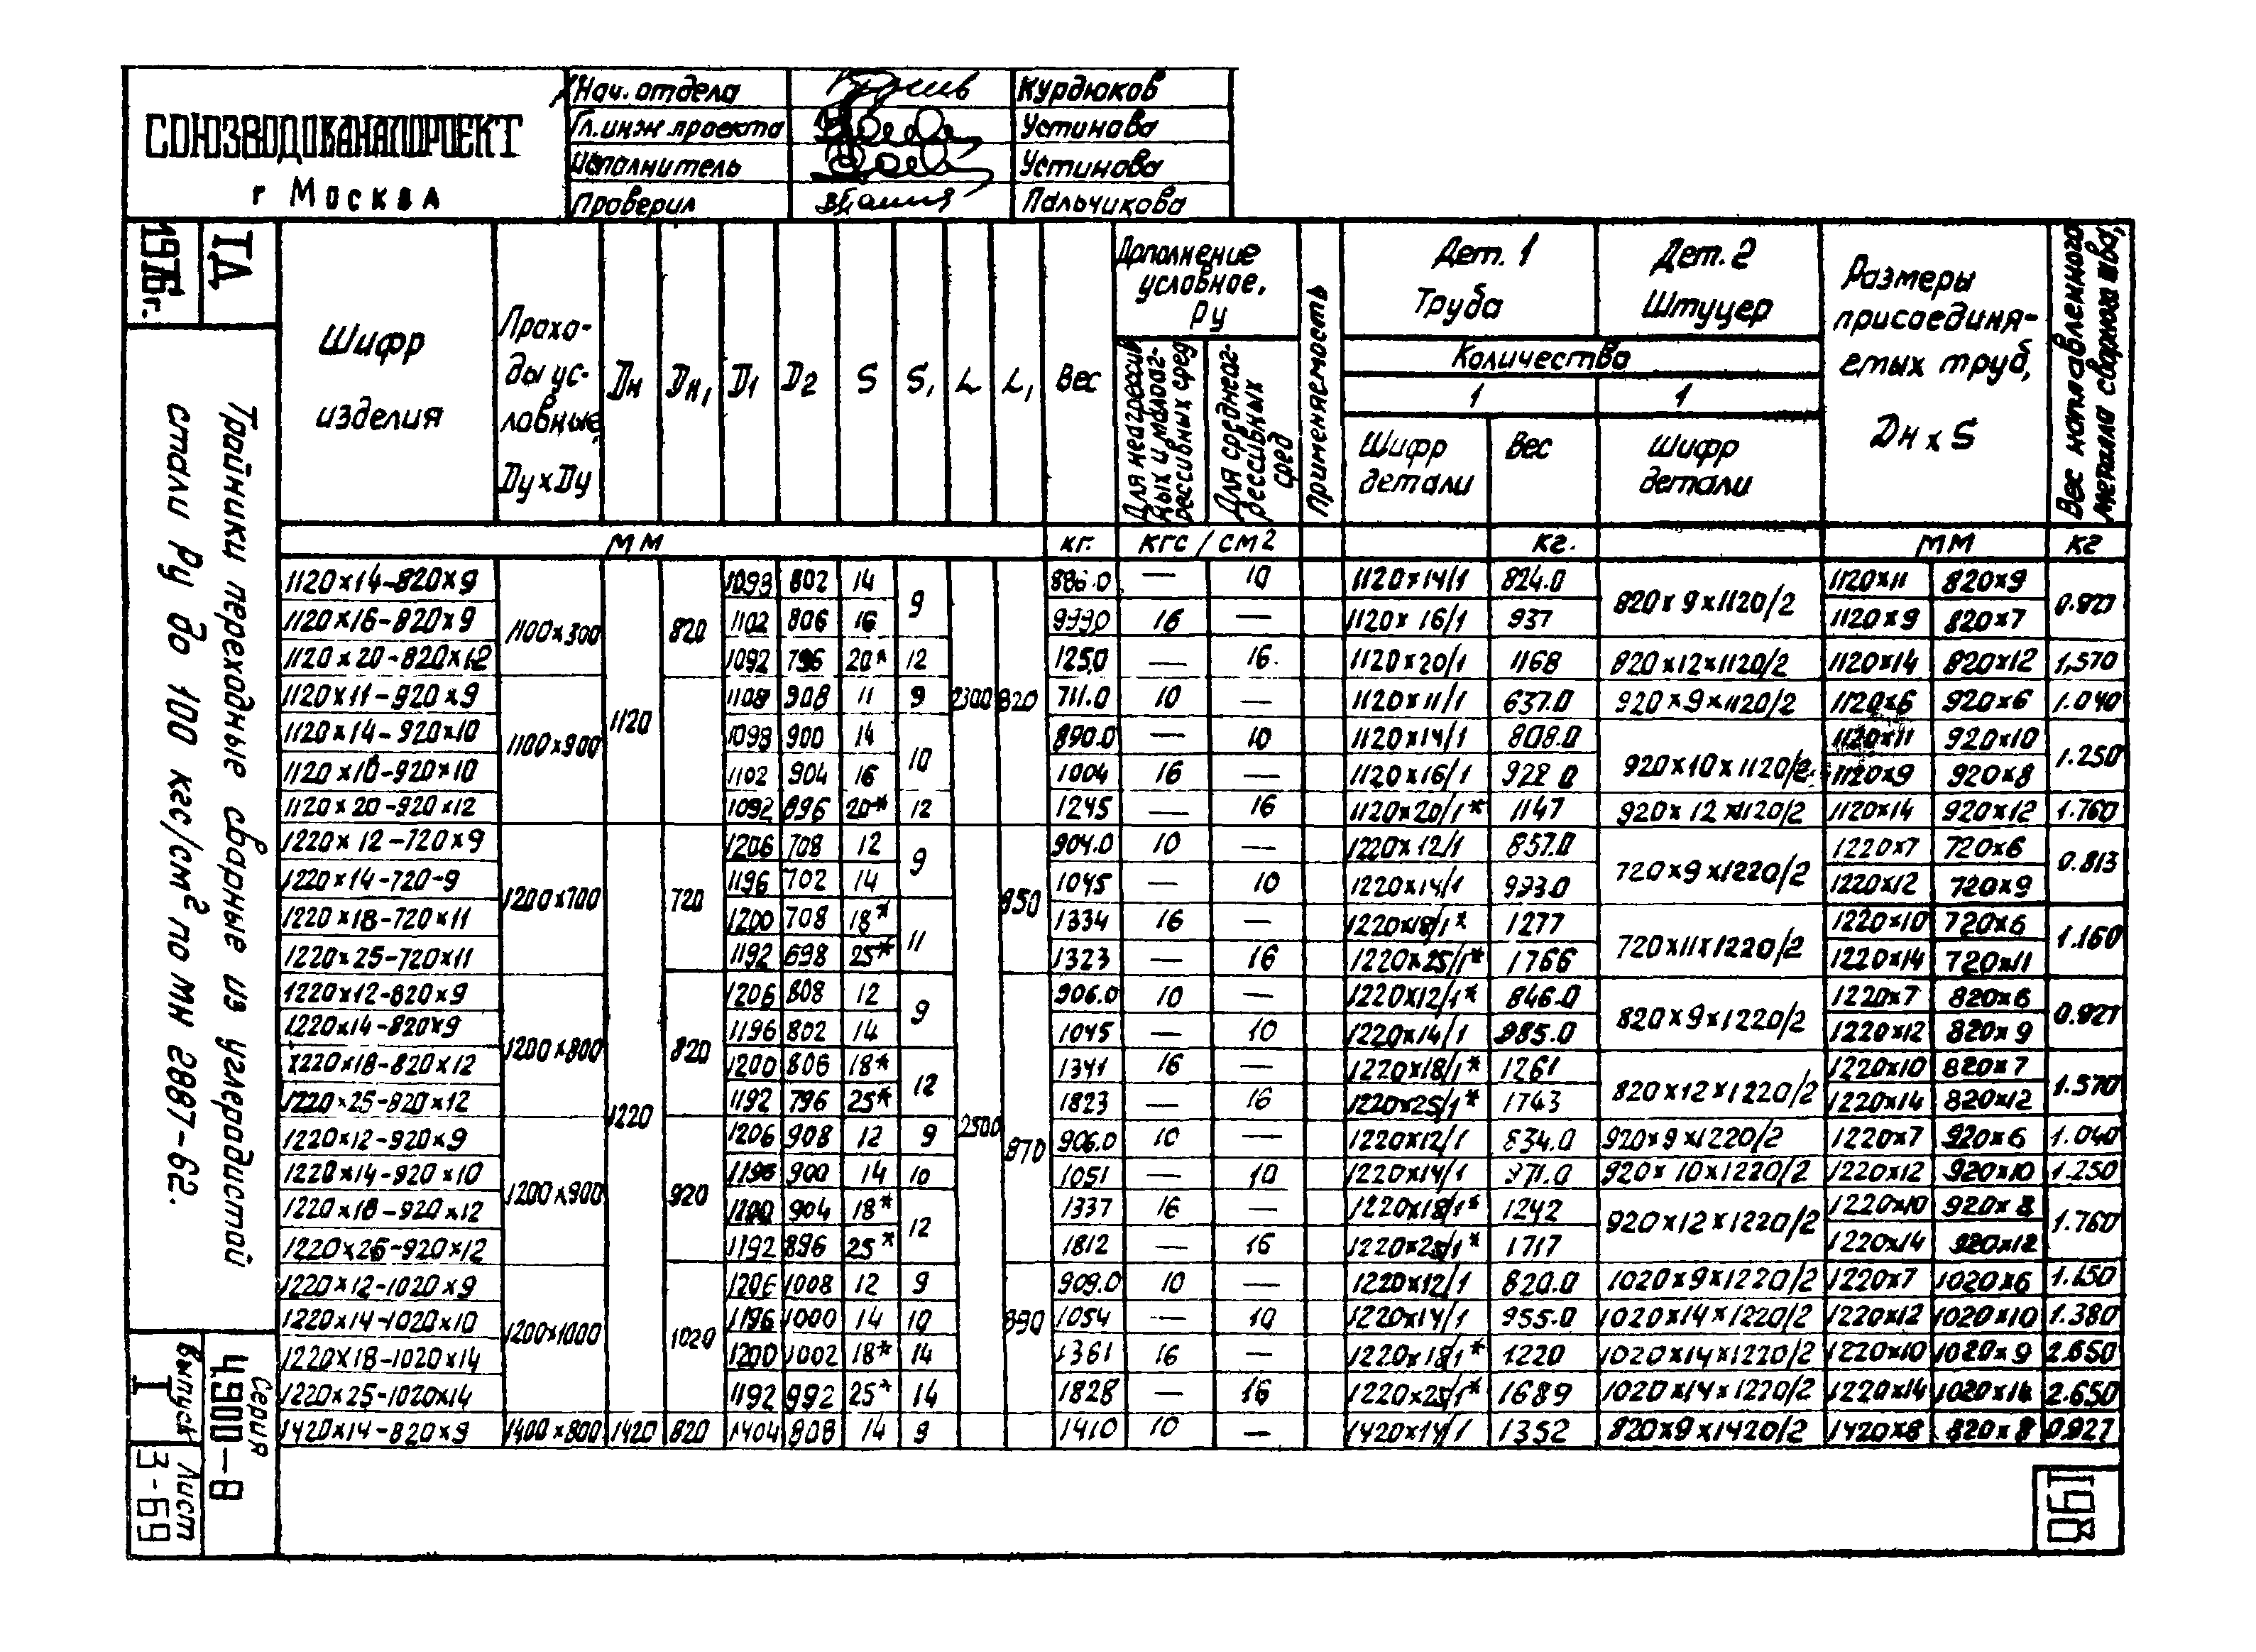 СОЮЗВОДОКАНАЛПРОЕКТ
г Москва
Нач. отдела Курдюков
Гл. инж проекта Устинова
Исполнитель Устинова
Проверил Пальчикова
ТД
1976г.
Тройники переходные сварные из углеродистой
стали Ру до 100 кгс/см2 по МН 2887-62.
Серия
4.900-8
Выпуск
I
Лист
3-69
198
Шифр изделия
Проходы условные, Dy x Dy
Dн Dн1 D1 D2 S S1 L L1 Вес
Дополнение условное, Ру
Для неагрессивных и малоагрессивных сред
Для среднеагрессивных сред
Применяемость
Дет. 1 Труба
Дет. 2 Штуцер
Количество
1 1
Шифр детали Вес Шифр детали
Размеры присоединяемых труб, Dн x S
Вес наплавленного металла сварного шва,
мм кг. кгс/см2 кг. мм кг
1120x14-820x9 1100x300 1120 820 1098 802 14 9 2300 820 886.0 — 10 1120x14/1 824.0 820x9x1120/2 1120x11 820x9 0.927
1120x16-820x9 1102 806 16 999,0 16 — 1120x16/1 937 1120x9 820x7
1120x20-820x12 1092 796 20* 12 125,0 — 16. 1120x20/1 1168 820x12x1120/2 1120x14 820x12 1,570
1120x11-920x9 1100x900 1108 908 11 9 711.0 10 — 1120x11/1 637.0 920x9x1120/2 1120x6 920x6 1.040
1120x14-920x10 1098 900 14 10 890.0 — 10 1120x14/1 808.0 920x10x1120/2 1120x11 920x10 1.250
1120x16-920x10 1102 904 16 1004 16 — 1120x16/1 922.0 1120x9 920x8
1120x20-920x12 1092 896 20* 12 1245 — 16 1120x20/1* 1147 920x12x1120/2 1120x14 920x12 1.760
1220x12-720x9 1200x700 1220 720 1206 708 12 9 2500 850 904.0 10 — 1220x12/1 857.0 720x9x1220/2 1220x7 720x6 0.813
1220x14-720-9 1196 702 14 1045 — 10 1220x14/1 993.0 1220x12 720x9
1220x18-720x11 1200 708 18* 11 1334 16 — 1220x18/1* 1277 720x11x1220/2 1220x10 720x6 1.160
1220x25-720x11 1192 698 25* 1323 — 16 1220x25/1* 1766 1220x14 720x11
1220x12-820x9 1200x800 820 1206 808 12 9 870 906.0 10 — 1220x12/1* 846.0 820x9x1220/2 1220x7 820x6 0.927
1220x14-820x9 1196 802 14 1045 — 10 1220x14/1 985.0 1220x12 820x9
1220x18-820x12 1200 806 18* 12 1341 16 — 1220x18/1* 1261 820x12x1220/2 1220x10 820x7 1.570
1220x25-820x12 1192 796 25* 1823 — 16 1220x25/1* 1743 1220x14 820x12
1220x12-920x9 1200x900 920 1206 908 12 9 906.0 10 — 1220x12/1 834.0 920x9x1220/2 1220x7 920x6 1.040
1220x14-920x10 1196 900 14 10 1051 — 10 1220x14/1 971.0 920x10x1220/2 1220x12 920x10 1.250
1220x18-920x12 1200 904 18* 12 1337 16 — 1220x18/1* 1242 920x12x1220/2 1220x10 920x8 1.760
1220x25-920x12 1192 896 25* 1812 — 16 1220x25/1* 1717 1220x14 920x12
1220x12-1020x9 1200x1000 1020 1206 1008 12 9 890 909.0 10 — 1220x12/1 820.0 1020x9x1220/2 1220x7 1020x6 1.150
1220x14-1020x10 1196 1000 14 10 1054 — 10 1220x14/1 955.0 1020x14x1220/2 1220x12 1020x10 1.380
1220x18-1020x14 1200 1002 18* 14 1361 16 — 1220x18/1* 1220 1020x14x1220/2 1220x10 1020x9 2.650
1220x25-1020x14 1192 992 25* 14 1828 — 16 1220x25/1* 1689 1020x14x1220/2 1220x14 1020x14 2.650
1420x14-820x9 1400x800 1420 820 1404 808 14 9 1410 10 — 1420x14/1 1352 820x9x1420/2 1420x8 820x8 0.927